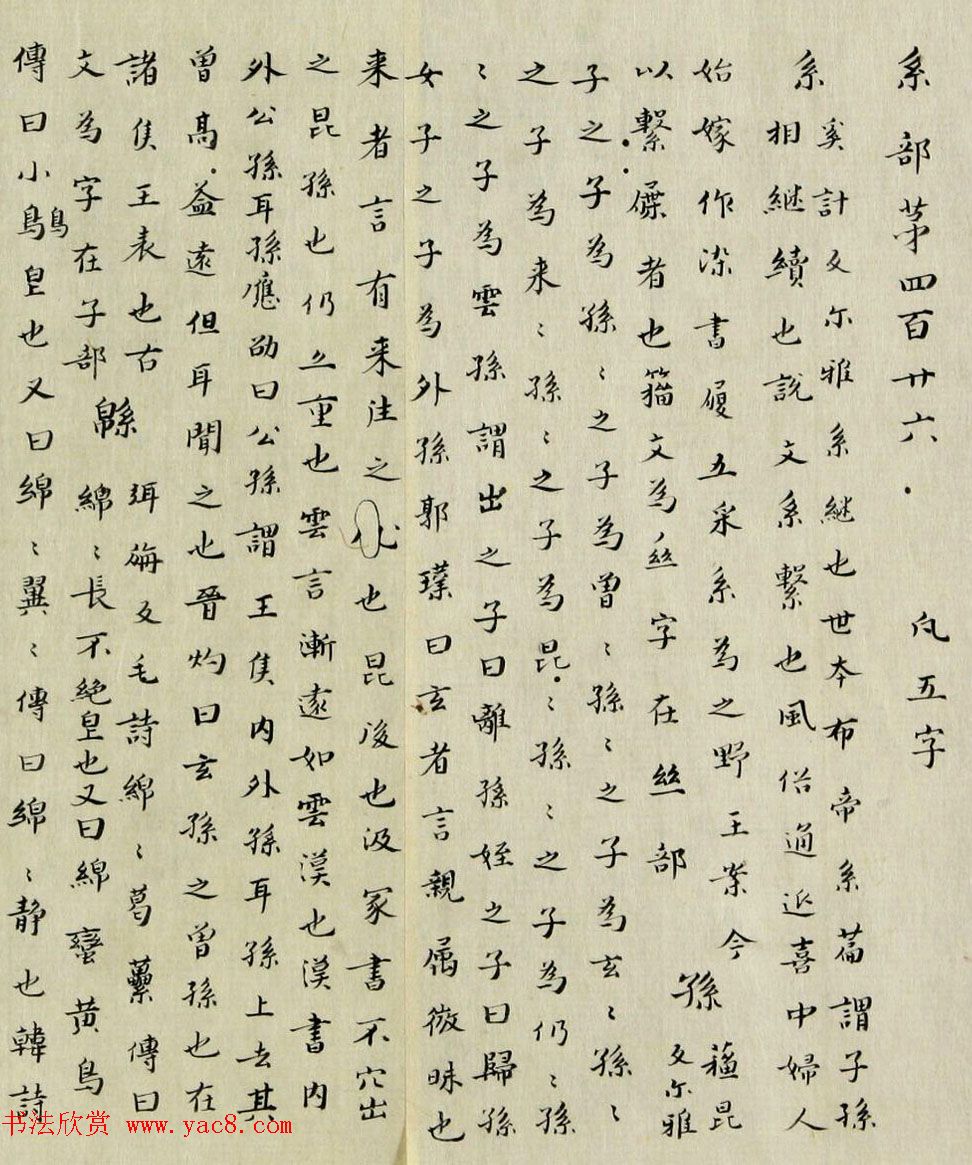 系部苐四百廿六 凡五字
系 奚計反尓雅系継也世夲布帝系篇謂子孫
相継續也說文系繫也風俗通近喜中婦人
始嫁作深書履五采系為之野王案今
以繫屧者也籕文為字在絲部 孫 蘓昆
反尓雅
子之子為孫〻之子為曽〻孫〻之子為玄〻孫〻
之子為来〻孫〻之子為昆〻孫〻之子為仍〻孫
〻之子為雲孫謂出之子曰離孫姪之子曰歸孫
女子之子為外孫郭璞曰玄者言親属微昧也
来者言有来注之也昆後也汲冢書不穴出
之昆孫也仍亦重也雲言漸遠如雲漢也漢書内
外公孫耳孫應劭曰公孫謂王侯内外孫耳孫上去其
曽髙益遠但耳聞之也晉灼曰玄孫之曽孫也在
諸侯王表也古
文為字在子部 緜 弭反毛詩綿〻葛虆傳曰
綿〻長不絶皇也又曰綿蠻黄鳥
傳曰小鳥皇也又曰綿〻翼〻傳曰綿〻静也韓詩
书法欣赏 www.yac8.com